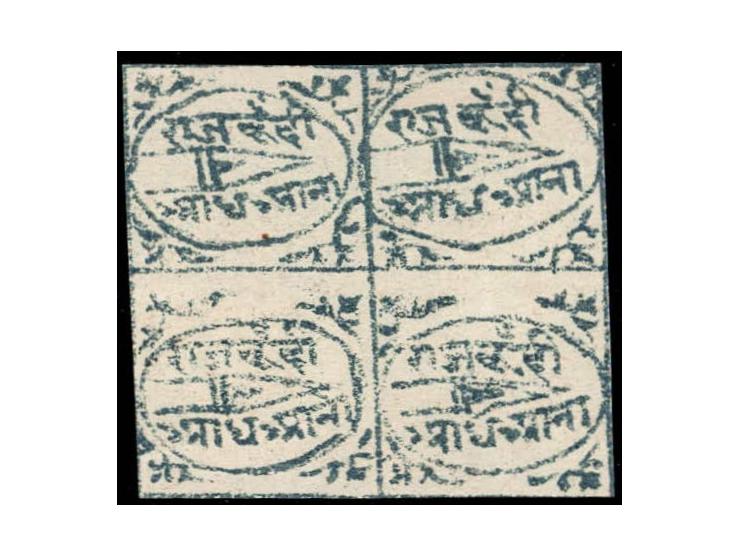 राज बुँदी
आध आना
राज बुँदी
आध आना
राज बुँदी
आध आना
राज बुँदी
आध आना